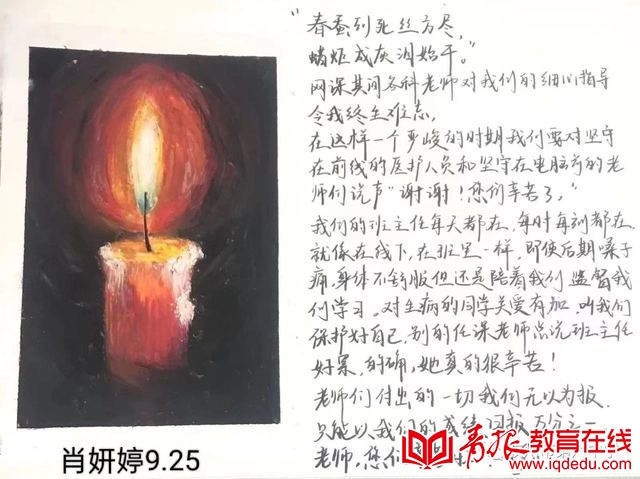 "春蚕到死丝方尽,
蜡炬成灰泪始干。"
网课其间各科老师对我们的细心指导
令我终生难忘。
在这样一个严峻的时期我们要对坚守
在前线的医护人员和坚守在电脑旁的老
师们说声"谢谢!您们辛苦了,"
我们的班主任每天都在,每时每刻都在,
就像在线下,在班里一样,即使后期嗓子
痛,身体不舒服但还是陪着我们 监督我
们学习。对生病的同学关爱有加,叫我们
保护好自己,别的任课老师总说班主任
好累,的确,她真的很辛苦!
老师们付出的一切我们无以为报,
只能以我们的成绩回报万分之一
老师,您们
肖妍婷9.25
青报教育在线
www.iqdedu.com